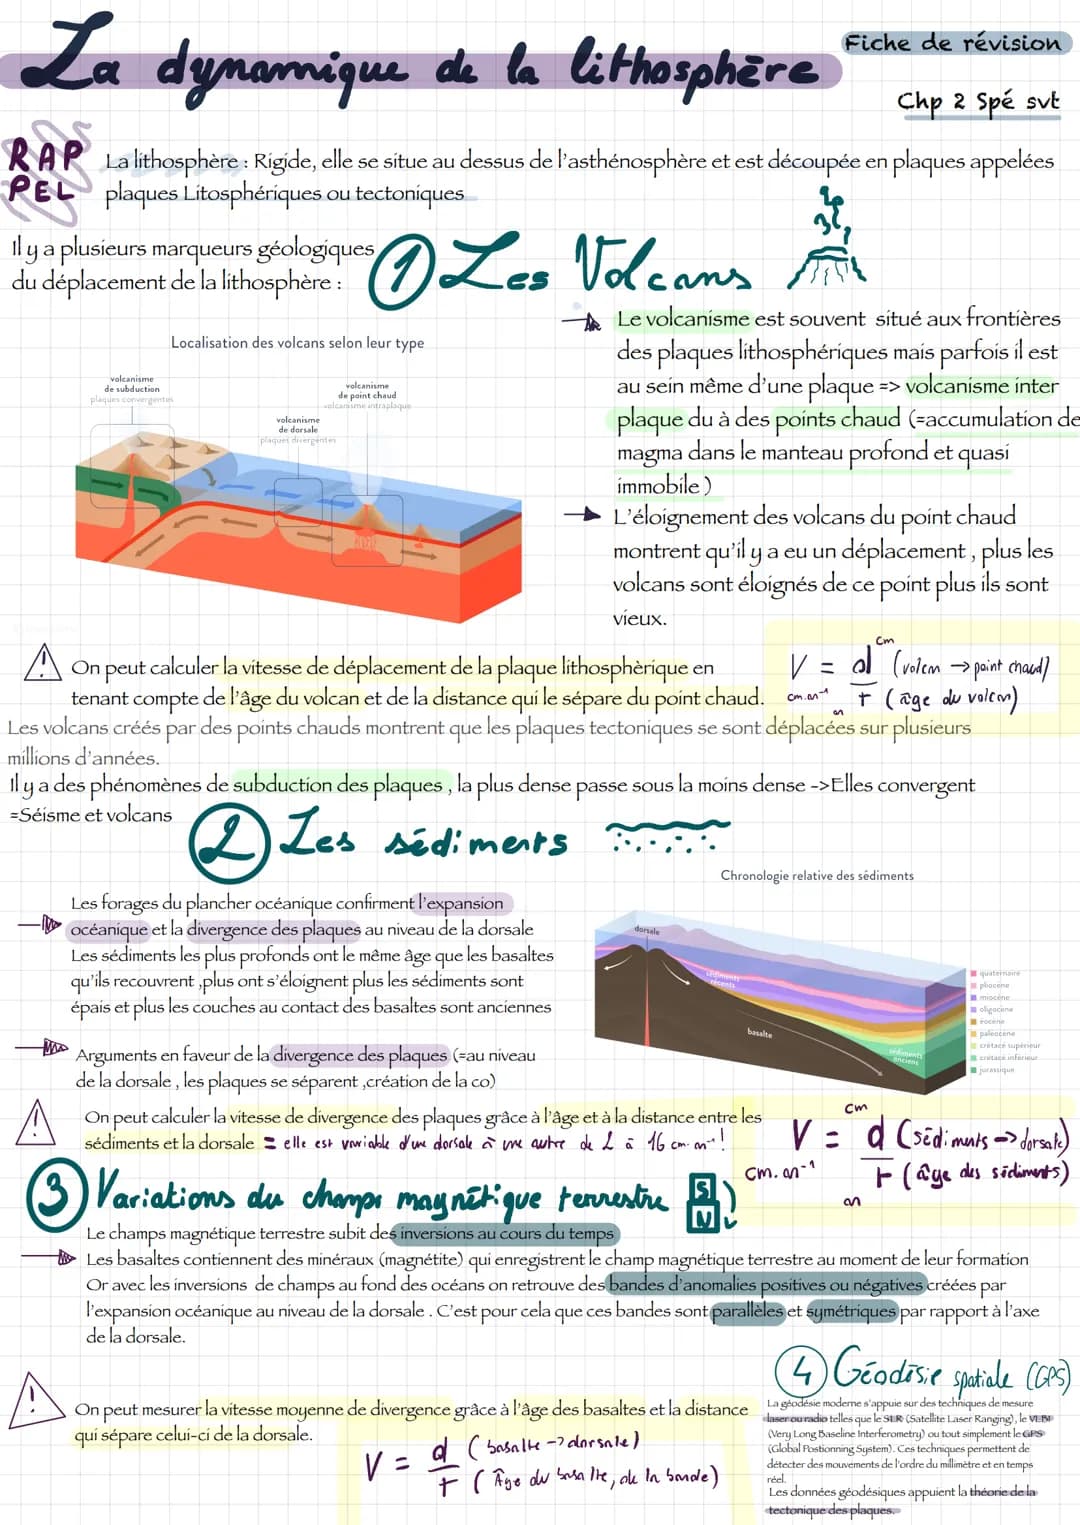 La dynamique de la lithosphère
Fiche de révision
Chp 2 Spé svt
RAP
PEL
La lithosphère : Rigide, elle se situe au dessus de l'asthénosphère et est découpée en plaques appelées
plaques Litosphériques ou tectoniques
Il y a plusieurs marqueurs géologiques
du déplacement de la lithosphère :
1 Les Volcans
Localisation des volcans selon leur type
volcanisme
de subduction
plaques convergentes
volcanisme
de dorsale
plaques divergentes
volcanisme
de point chaud
volcanisme intraplaque
Le volcanisme est souvent situé aux frontières
des plaques lithosphériques mais parfois il est
au sein même d'une plaque => volcanisme inter
plaque du à des points chaud (=accumulation de
magma dans le manteau profond et quasi
immobile)
L'éloignement des volcans du point chaud
montrent qu'il y a eu un déplacement , plus les
volcans sont éloignés de ce point plus ils sont
vieux.
On peut calculer la vitesse de déplacement de la plaque lithosphèrique en
tenant compte de l'âge du volcan et de la distance qui le sépare du point chaud.
cm
V = d (volcan → point chaud)
cm.an⁻¹ t (âge du volcan)
an
Les volcans créés par des points chauds montrent que les plaques tectoniques se sont déplacées sur plusieurs
millions d'années.
Il y a des phénomènes de subduction des plaques , la plus dense passe sous la moins dense ->Elles convergent
=Séisme et volcans
2 Les sédiments
Chronologie relative des sédiments
Les forages du plancher océanique confirment l'expansion
océanique et la divergence des plaques au niveau de la dorsale
Les sédiments les plus profonds ont le même âge que les basaltes
qu'ils recouvrent ,plus ont s'éloignent plus les sédiments sont
épais et plus les couches au contact des basaltes sont anciennes
dorsale
sédiments
récents
basalte
sédiments
anciens
quaternaire
pliocène
miocène
oligocène
éocène
paléocène
crétacé supérieur
crétacé inférieur
jurassique
Arguments en faveur de la divergence des plaques (=au niveau
de la dorsale , les plaques se séparent ,création de la co)
On peut calculer la vitesse de divergence des plaques grâce à l'âge et à la distance entre les
sédiments et la dorsale = elle est variable d'une dorsale à une autre de 2 à 16 cm.an⁻¹ !
cm
V = d (sédiments -> dorsale)
cm.an⁻¹ t (âge des sédiments)
an
3 Variations du champs magnétique terrestre
S
N
Le champs magnétique terrestre subit des inversions au cours du temps
Les basaltes contiennent des minéraux (magnétite) qui enregistrent le champ magnétique terrestre au moment de leur formation
Or avec les inversions de champs au fond des océans on retrouve des bandes d'anomalies positives ou négatives créées par
l'expansion océanique au niveau de la dorsale . C'est pour cela que ces bandes sont parallèles et symétriques par rapport à l'axe
de la dorsale.
On peut mesurer la vitesse moyenne de divergence grâce à l'âge des basaltes et la distance
qui sépare celui-ci de la dorsale.
V = d (basalte -> dorsale)
t (Âge du basalte, de la bande)
4 Géodésie spatiale (GPS)
La géodésie moderne s'appuie sur des techniques de mesure
laser ou radio telles que le SLR (Satellite Laser Ranging), le VLBI
(Very Long Baseline Interferometry) ou tout simplement le GPS
(Global Postionning System). Ces techniques permettent de
détecter des mouvements de l'ordre du millimètre et en temps
réel.
Les données géodésiques appuient la théorie de la
tectonique des plaques.